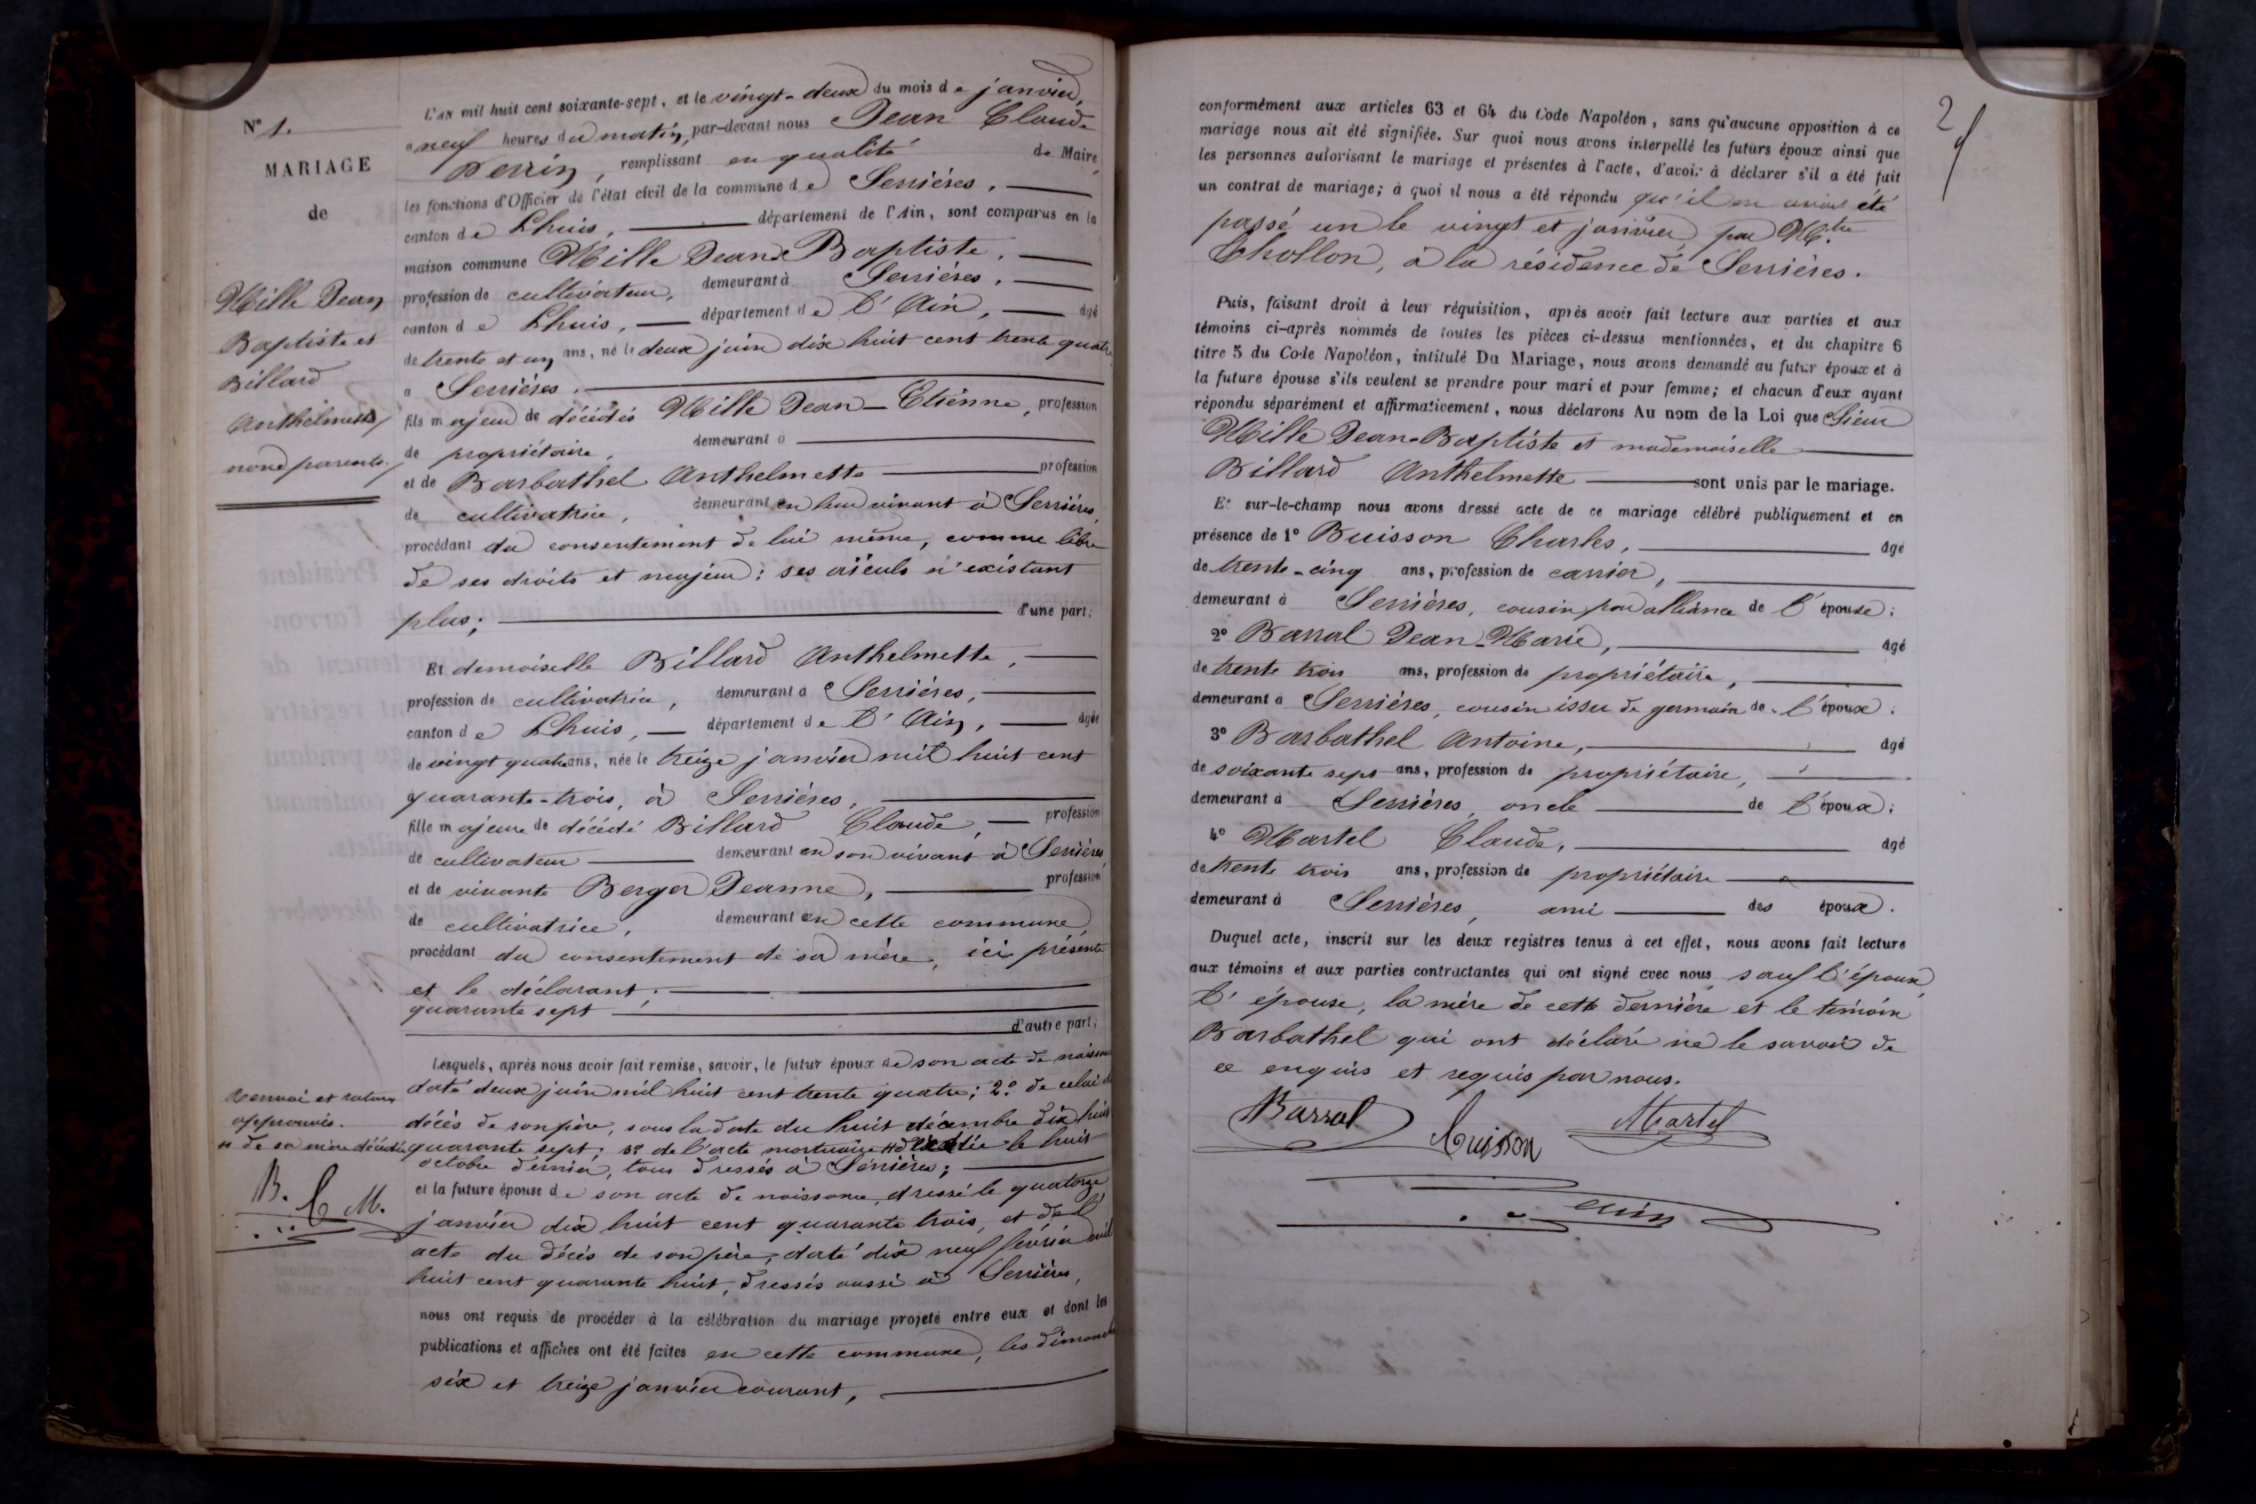 N° 1.
MARIAGE
de
Mille Jean
Baptiste et
Billard
Anthelmette
non parents.
L'an mil huit cent soixante-sept, et le vingt-deux du mois de janvier,
a neuf heures du matin, par-devant nous Jean Claude
Perrin, remplissant en qualité de Maire,
les fonctions d'Officier de l'état civil de la commune de Serrières,
canton de Lhuis, département de l'Ain, sont comparus en la
maison commune Mille Jean-Baptiste,
profession de cultivateur, demeurant à Serrières,
canton de Lhuis, département de l'Ain, âgé
de trente et un ans, né le deux juin dix huit cent trente quatre
a Serrières.
fils majeur de décédés Mille Jean-Etienne, profession
de propriétaire, demeurant à
et de Barbathel Anthelmette profession
de cultivatrice, demeurant en leur vivant à Serrières,
procédant du consentement de lui même, comme libre
de ses droits et majeur; ses aïeuls n'existant
plus; d'une part;
Et demoiselle Billard Anthelmette,
profession de cultivatrice, demeurant à Serrières,
canton de Lhuis, département de l'Ain, âgée
de vingt quatre ans, née le treize janvier mil huit cent
quarante-trois, à Serrières,
fille majeure de décédé Billard Claude, profession
de cultivateur demeurant en son vivant à Serrières
et de vivante Berger Jeanne, profession
de cultivatrice, demeurant en cette commune,
procédant du consentement de sa mère, ici présente
et le déclarant;
quarante sept
d'autre part;
Lesquels, après nous avoir fait remise, savoir, le futur époux de son acte de naissance
daté deux juin mil huit cent trente quatre; 2° de celui de
décès de son père, sous la date du huit décembre dix huit
quarante sept; 3° de l'acte mortuaire # le huit
octobre dernier, tous dressés à Serrières;
et la future épouse de son acte de naissance, dressé le quatorze
janvier dix huit cent quarante trois, et de l'
acte du décès de son père, daté dix neuf février mil
huit cent quarante huit, dressés aussi à Serrières,
nous ont requis de procéder à la célébration du mariage projeté entre eux et dont les
publications et affiches ont été faites en cette commune, les dimanches
six et treize janvier courant,
Renvoi et rature
approuvés.
# de sa mère décédée
B. C M.
2
conformément aux articles 63 et 64 du Code Napoléon, sans qu'aucune opposition à ce
mariage nous ait été signifiée. Sur quoi nous avons interpellé les futurs époux ainsi que
les personnes autorisant le mariage et présentes à l'acte, d'avoir à déclarer s'il a été fait
un contrat de mariage; à quoi il nous a été répondu qu'il en avait été
passé un le vingt et janvier, par Mtre
Chollon, à la résidence de Serrières.
Puis, faisant droit à leur réquisition, après avoir fait lecture aux parties et aux
témoins ci-après nommés de toutes les pièces ci-dessus mentionnées, et du chapitre 6
titre 5 du Code Napoléon, intitulé Du Mariage, nous avons demandé au futur époux et à
la future épouse s'ils veulent se prendre pour mari et pour femme; et chacun d'eux ayant
répondu séparément et affirmativement, nous déclarons Au nom de la Loi que Sieur
Mille Jean-Baptiste et mademoiselle
Billard Anthelmette sont unis par le mariage.
Et sur-le-champ nous avons dressé acte de ce mariage célébré publiquement et en
présence de 1° Buisson Charles, âgé
de trente-cinq ans, profession de carrier,
demeurant à Serrières, cousin par alliance de l'épouse;
2° Barral Jean-Marie, âgé
de trente trois ans, profession de propriétaire,
demeurant à Serrières, cousin issu de germain de l'époux;
3° Barbathel Antoine, âgé
de soixante sept ans, profession de propriétaire,
demeurant à Serrières, oncle de l'époux;
4° Martel Claude, âgé
de trente trois ans, profession de propriétaire
demeurant à Serrières, ami des époux.
Duquel acte, inscrit sur les deux registres tenus à cet effet, nous avons fait lecture
aux témoins et aux parties contractantes qui ont signé avec nous, sauf l'époux,
l'épouse, la mère de cette dernière et le témoin
Barbathel qui ont déclaré ne le savoir de
ce enquis et requis par nous.
Barral Buisson Martel
Perrin